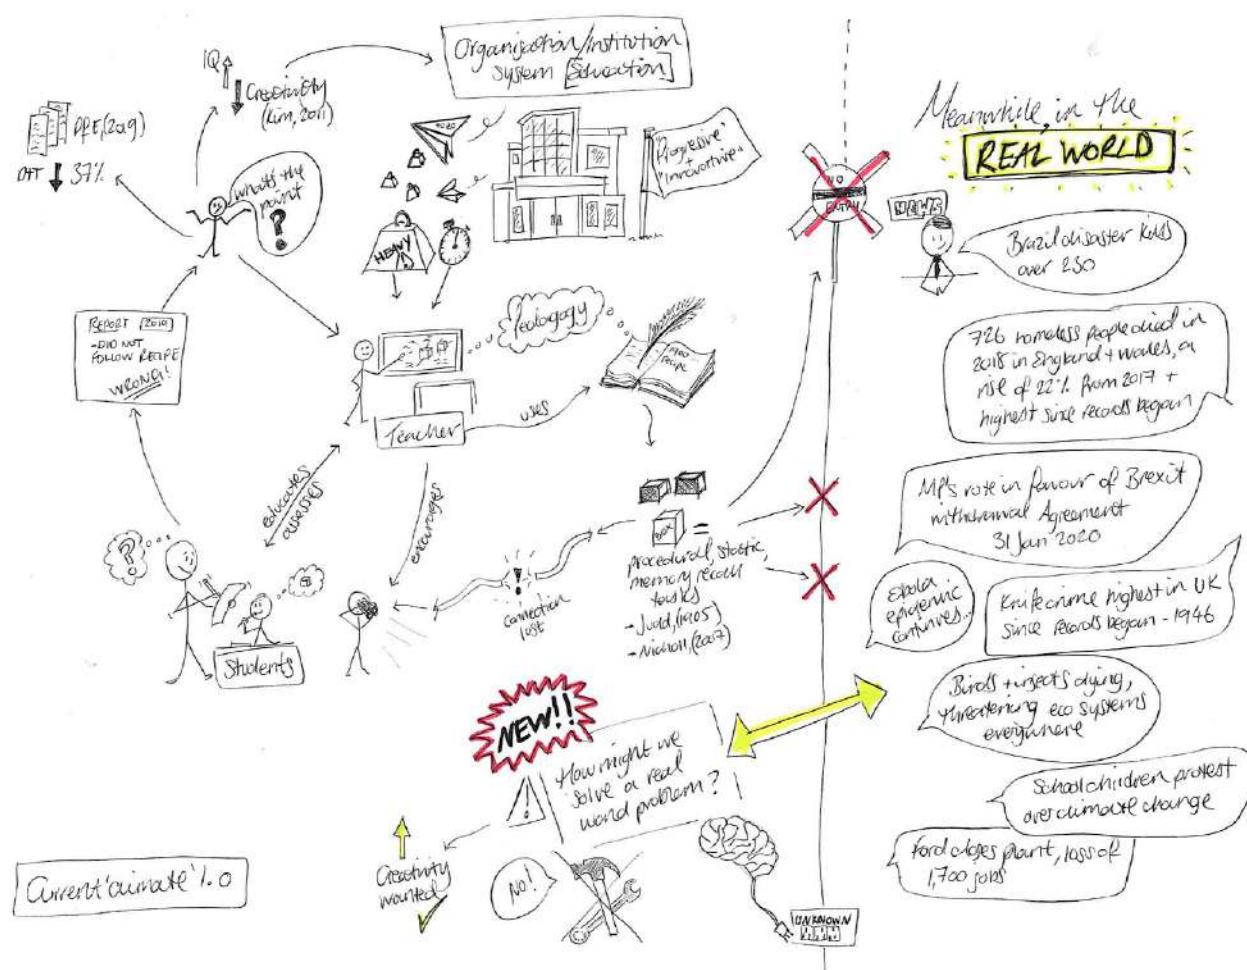 Organisation/institution
system [Education]
IQ
Creativity
(Kim, 2011)
DfE, (2019)
D+T
37%
what's the
point
?
2020
'Progressive'
+
'Innovative'
HEAVY
REPORT [2019]
-DID NOT
FOLLOW RECIPE
WRONG!
Pedagogy
recipe
Teacher
uses
educates
assesses
encourages
?
Students
!
connection
lost
BOX
=
procedural, static,
memory recall
tasks
- Judd, (1905)
- Nicholl, (2007)
NO
ENTRY
Meanwhile, in the
REAL WORLD
NEWS
Brazil disaster kills
over 230
726 homeless people died in
2018 in England + Wales, a
rise of 22% from 2017 +
highest since records began
MP's vote in favour of Brexit
withdrawal Agreement
31 Jan 2020
Ebola
epidemic
continues...
Knife crime highest in UK
since records began - 1946
Birds + insects dying,
threatening eco systems
everywhere
School children protest
over climate change
Ford closes plant, loss of
1,700 jobs
NEW!!
How might we
solve a real
world problem?
!
Creativity
wanted
NO!
UNKNOWN
Current 'climate' 1.0